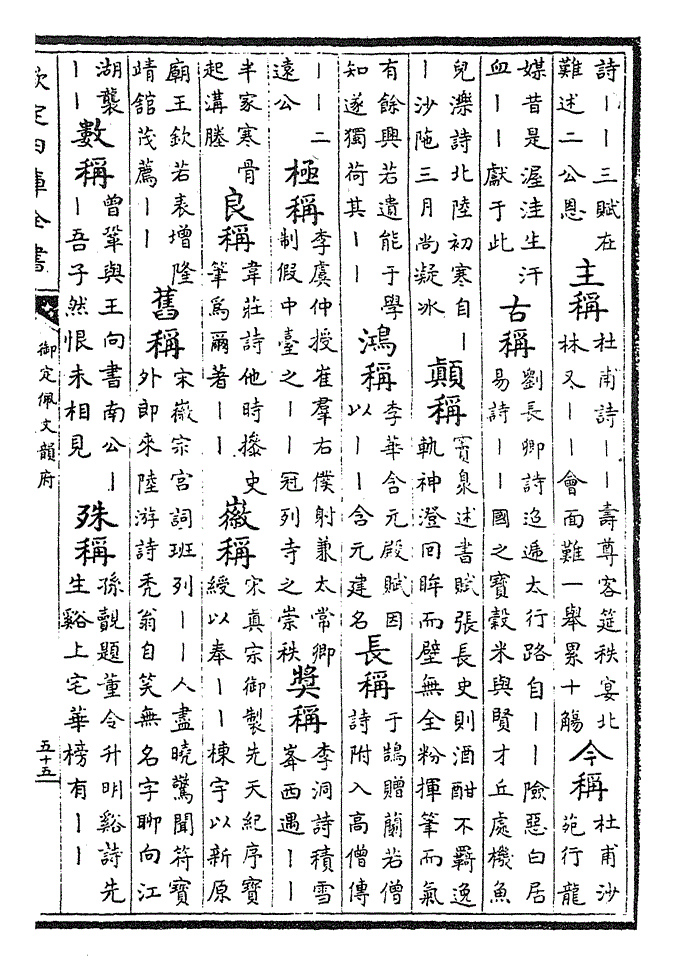 詩丨丨三賦在
難述二公恩
主稱
杜甫詩丨丨壽尊客筵秩宴北
林冬丨丨會面難一舉累十觴
今稱
杜甫沙
苑行龍
媒昔是渥洼生汗
血丨丨獻于此
古稱
劉長卿詩迢遞太行路自丨丨險惡白居
易詩丨丨國之寶穀米與賢才丘處機魚
兒濼詩北陸初寒自丨
丨沙陁三月尚凝冰
顛稱
竇臮述書賦張長史則酒酣不羈逸
軌神澄回眸而壁無全粉揮筆而氣
有餘興若遺能于學
知遂獨荷其丨丨
鴻稱
李華含元殿賦因
以丨丨含元建名
長稱
于鵠贈蘭若僧
詩附入高僧傳
丨丨二
遠公
極稱
李虞仲授崔羣右僕射兼太常卿
制假中臺之丨丨冠列寺之崇秩
奬稱
李洞詩積雪
峯西遇丨丨
半家寒骨
起溝塍
良稱
韋莊詩他時搽史
筆爲爾著丨丨
徽稱
宋真宗御製先天紀序寶
綬以奉丨丨棟宇以新原
廟王欽若表增隆
靖館茂薦丨丨
舊稱
宋徽宗宮詞班列丨丨人盡曉驚聞符寶
外郎來陸游詩禿翁自笑無名字聊向江
湖襲
丨丨
數稱
曾鞏與王向書南公丨
丨吾子然恨未相見
殊稱
孫覿題董令升明谿詩先
生谿上宅華榜有丨丨
欽定四庫全書
御定佩文韻府
五十五